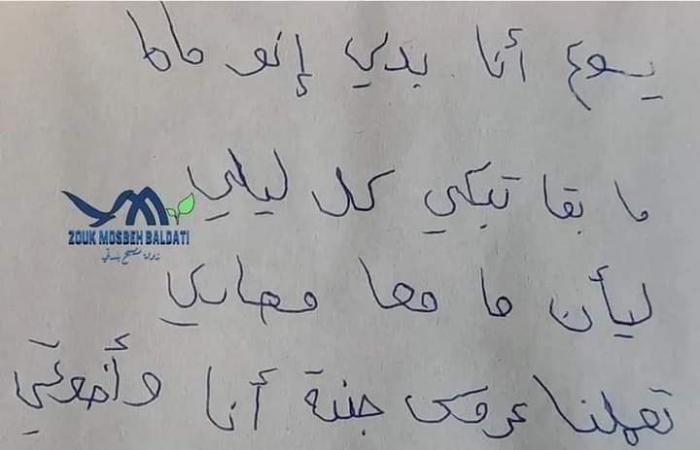 يسوع أنا بدي إنو ماما
ما بقا تبكي كل ليلي
ZOUK MOSBEH BALDATI
ليأن ما معا مصاري
تعملنا عروس جبنة أنا وأخوتي